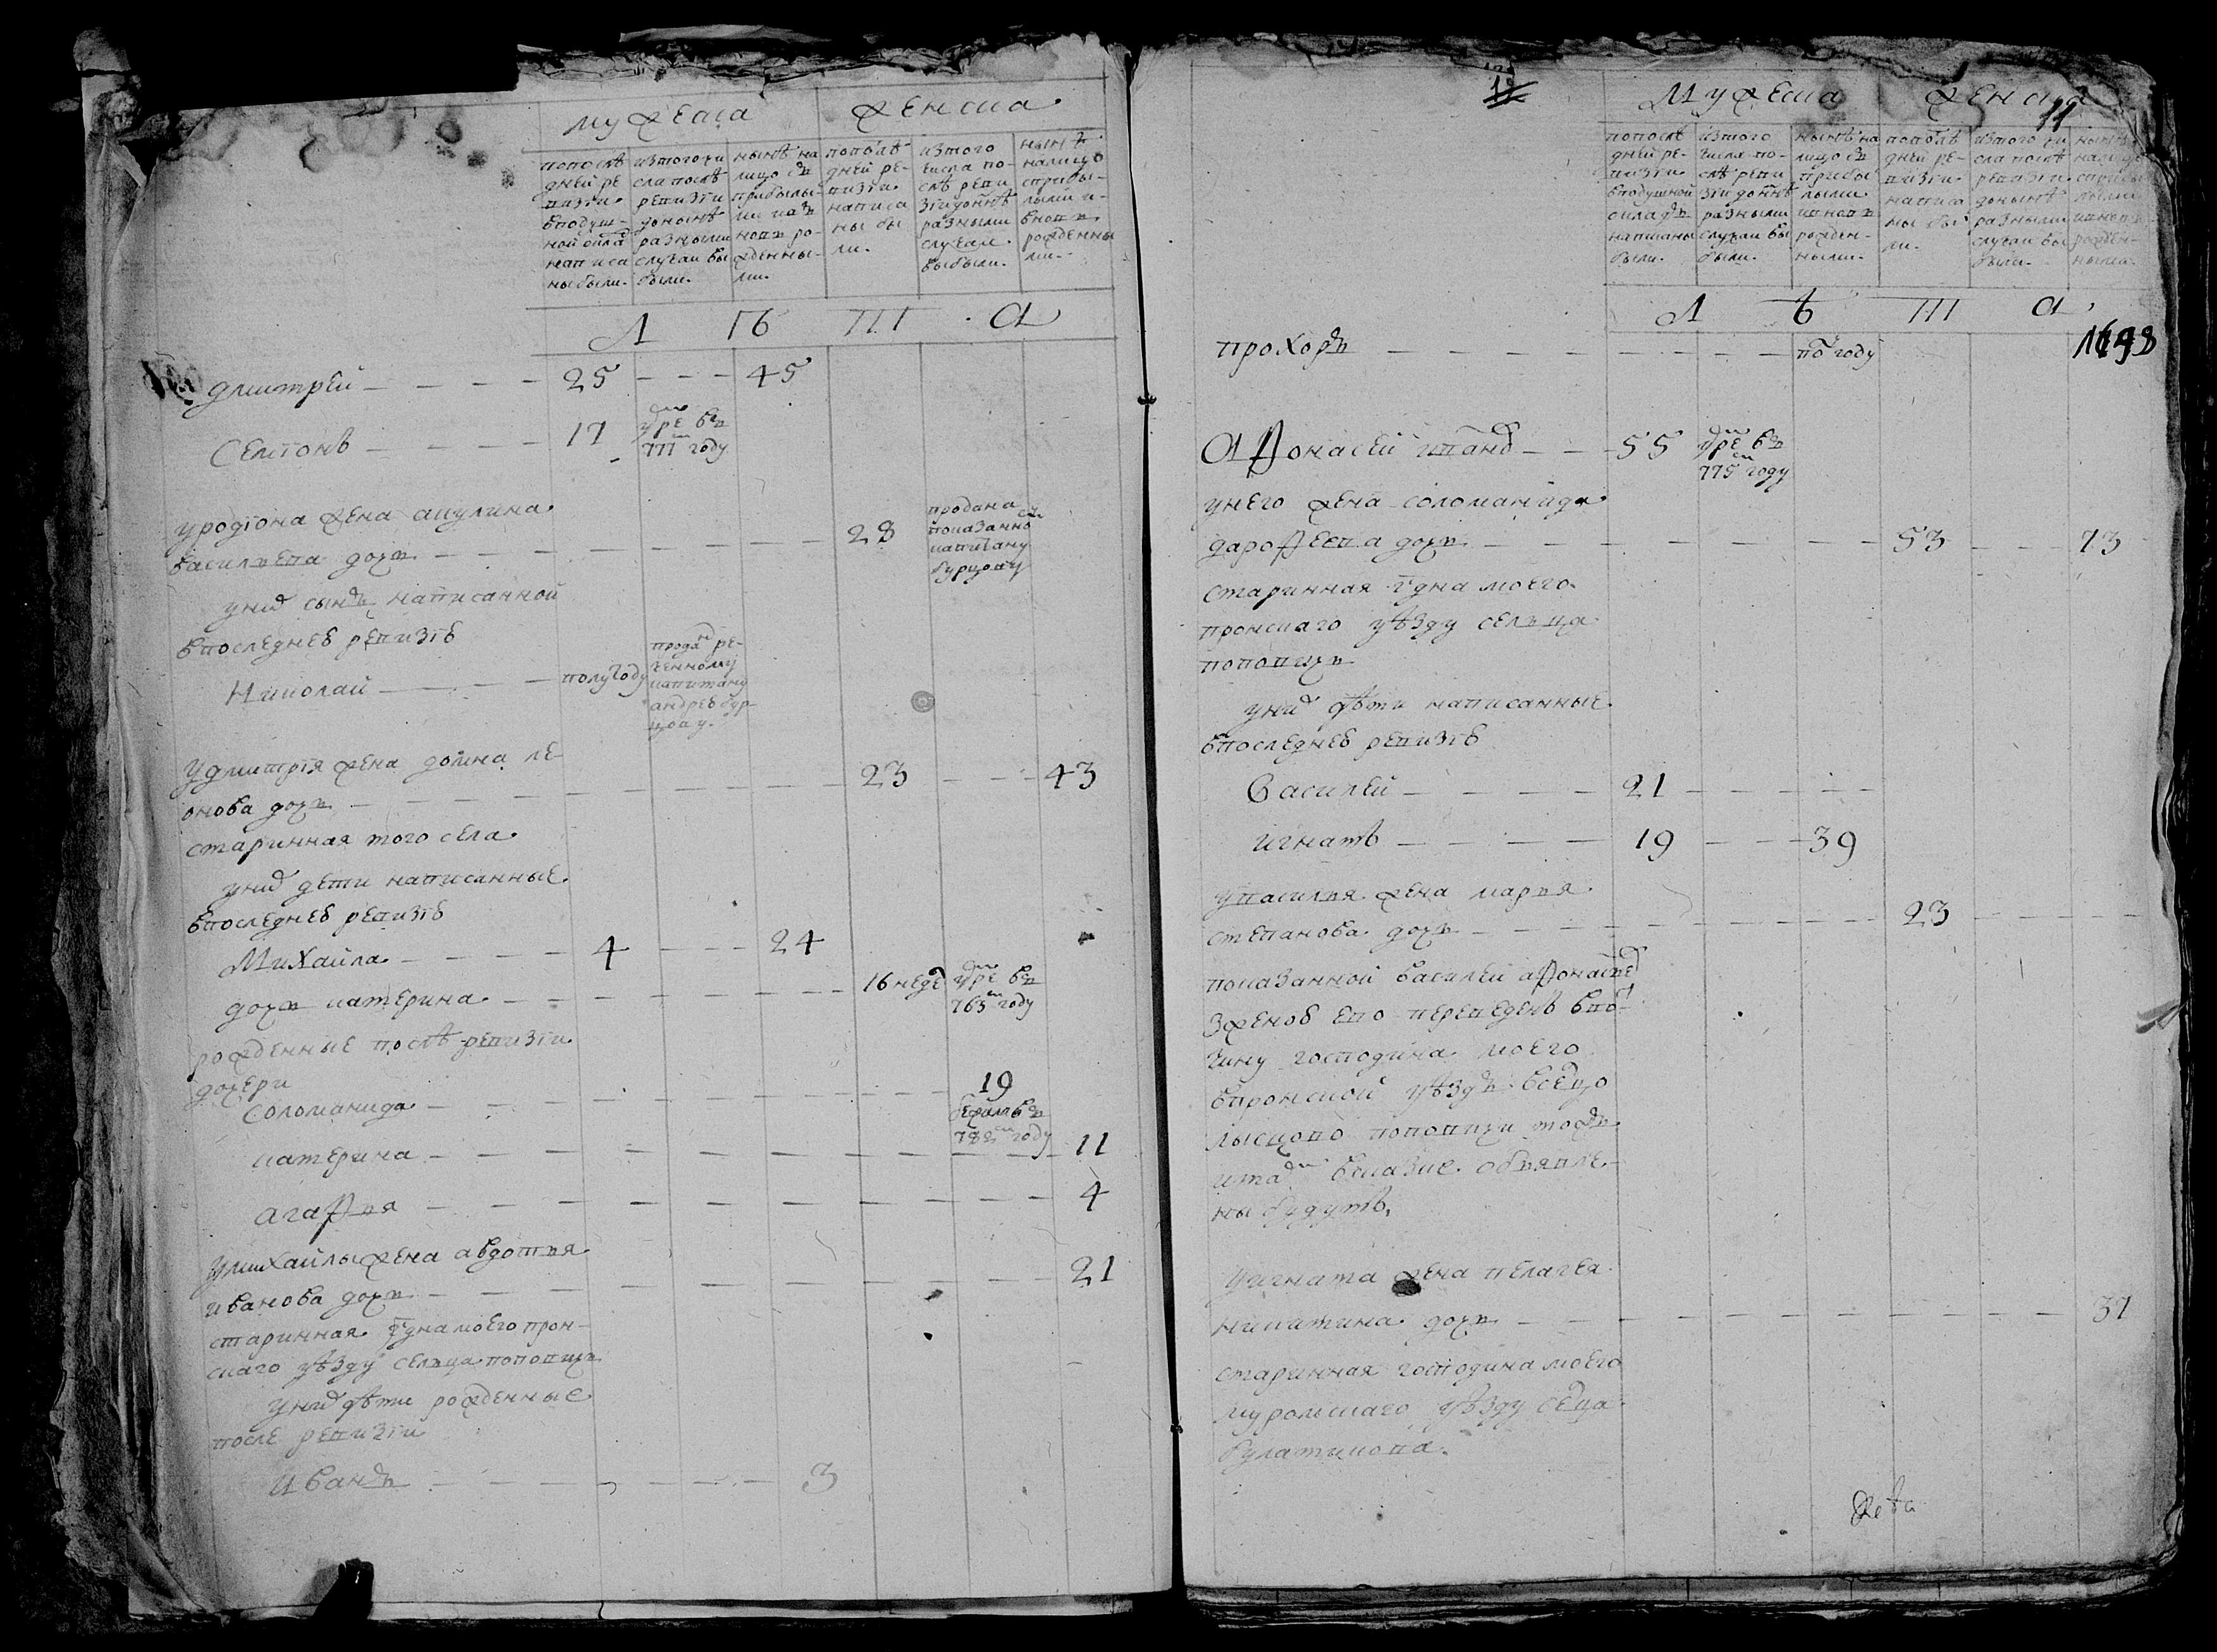 мужеска женска
попослѣ
дней ре
визіи
вподуш-
ной окла
написа
ны были.
изтогочи
сла послѣ
ревизіи
донынѣ
разными
случаи вы
были.
нынѣ на
лицо съ
прибылы
ми
новъ ро-
жденны-
ми.
попослѣ
дней ре-
визіи
написа
ны бы
ли.
изтого
числа по-
слѣ реви
зіи донынѣ
разными
случаи
выбыли.
нынѣ
налицо
сприбы-
лыми и
вновь
рожденны
ми.
Л Ѣ Т А
дмитрей 25 45
Семіонъ 17 умре въ
777м году
уродіона жена акулина
васильева дочь 28
продана
показанно
капитану
бурцову
уних сынъ написанной
впоследнеѣ ревизіѣ
Николай полугоду
проданъ ре-
ченному
капитану
андреѣ бур-
цову.
Удмитрія жена домна ле-
онова дочь 23 43
старинная того села
уних дети написанные
впоследнеѣ ревизіѣ
Михайла 4 24
дочь катерина 16 неде умре въ
763м году
рожденные послѣ ревизіи
дочери
соломанида 19
бежала въ
782м году
катерина 11
агафья 4
Умихайлы жена авдотья
иванова дочь 21
старинная гдна моего прон-
скаго уѣзду сельца поповичь
уних дѣти рожденные
после ревизіи
Иванъ 3
12
11
Мужеска женска
попослѣ
дней ре-
визіи
вподушной
окладъ
написаны
были.
изтого
числа по-
слѣ реви
зіи донынѣ
разными
случаи вы
были.
нынѣ на
лицо съ
прибы
лыми
ивновь
рожден-
ными.
попослѣ
дней ре-
визіи
написа
ны бы
ли.
изтого чи
сла послѣ
ревизіи
донынѣ
разными
случаи вы
были.
нынѣ
налицо
сприбы
лыми
ивновь
рожден-
ными.
Л Ѣ Т А
прохоръ по году
Афонасей ивановъ 55 умре въ
775м году
унего жена соломанида
дарофеева дочь 53 73
старинная гдна моего
пронскаго уѣзду сельца
поповичь
уних дѣти написанные
впоследнеѣ ревизіѣ
Василей 21
игнатъ 19 39
Увасилья жена марья
степанова дочь 23
показанной василей афонасьев
зженоѣ ево переведенъ вво-
чину господина моего
впронской уѣздъ всельцо
поповичи тожъ
и тамъ всказке обьявле-
ны будутъ.
Уигната жена пелагея
никитина дочь 37
старинная господина моего
муромскаго уѣзду сельца
булатикова.